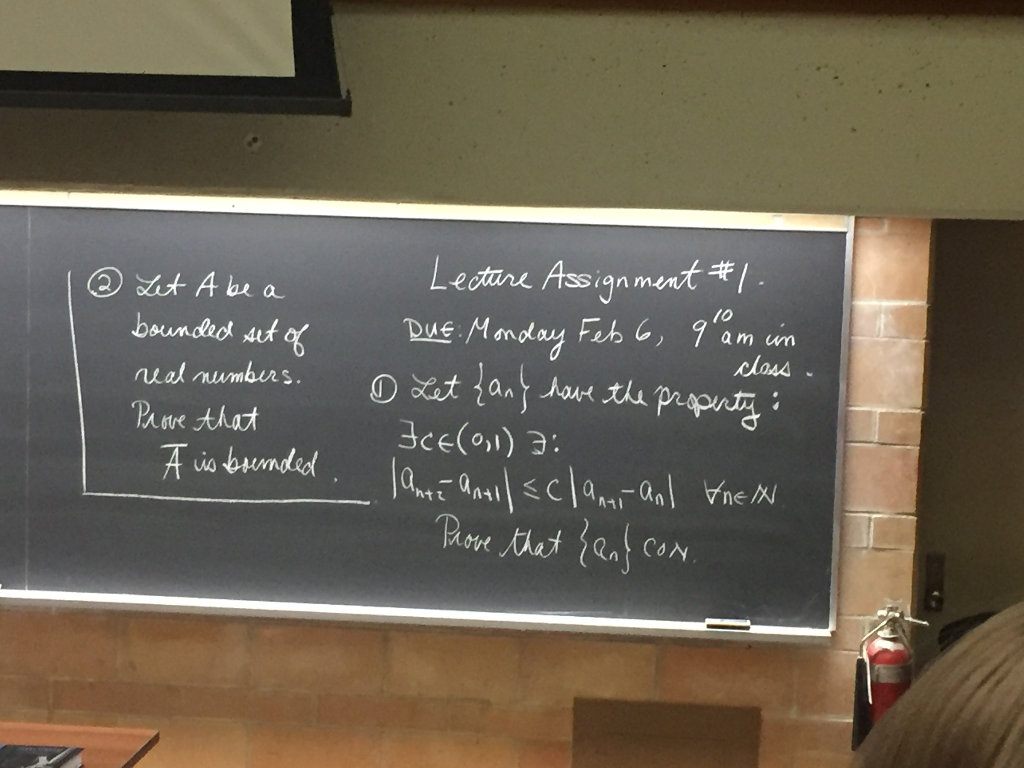 Lecture Assignment #1.
DUE: Monday Feb 6, 9¹⁰ am in
class.
① Let {aₙ} have the property:
∃c∈(0,1) ∋:
|aₙ₊₂-aₙ₊₁| ≤ c |aₙ₊₁-aₙ| ∀n∈ℕ
Prove that {aₙ} con.
② Let A be a
bounded set of
real numbers.
Prove that
A̅ is bounded.